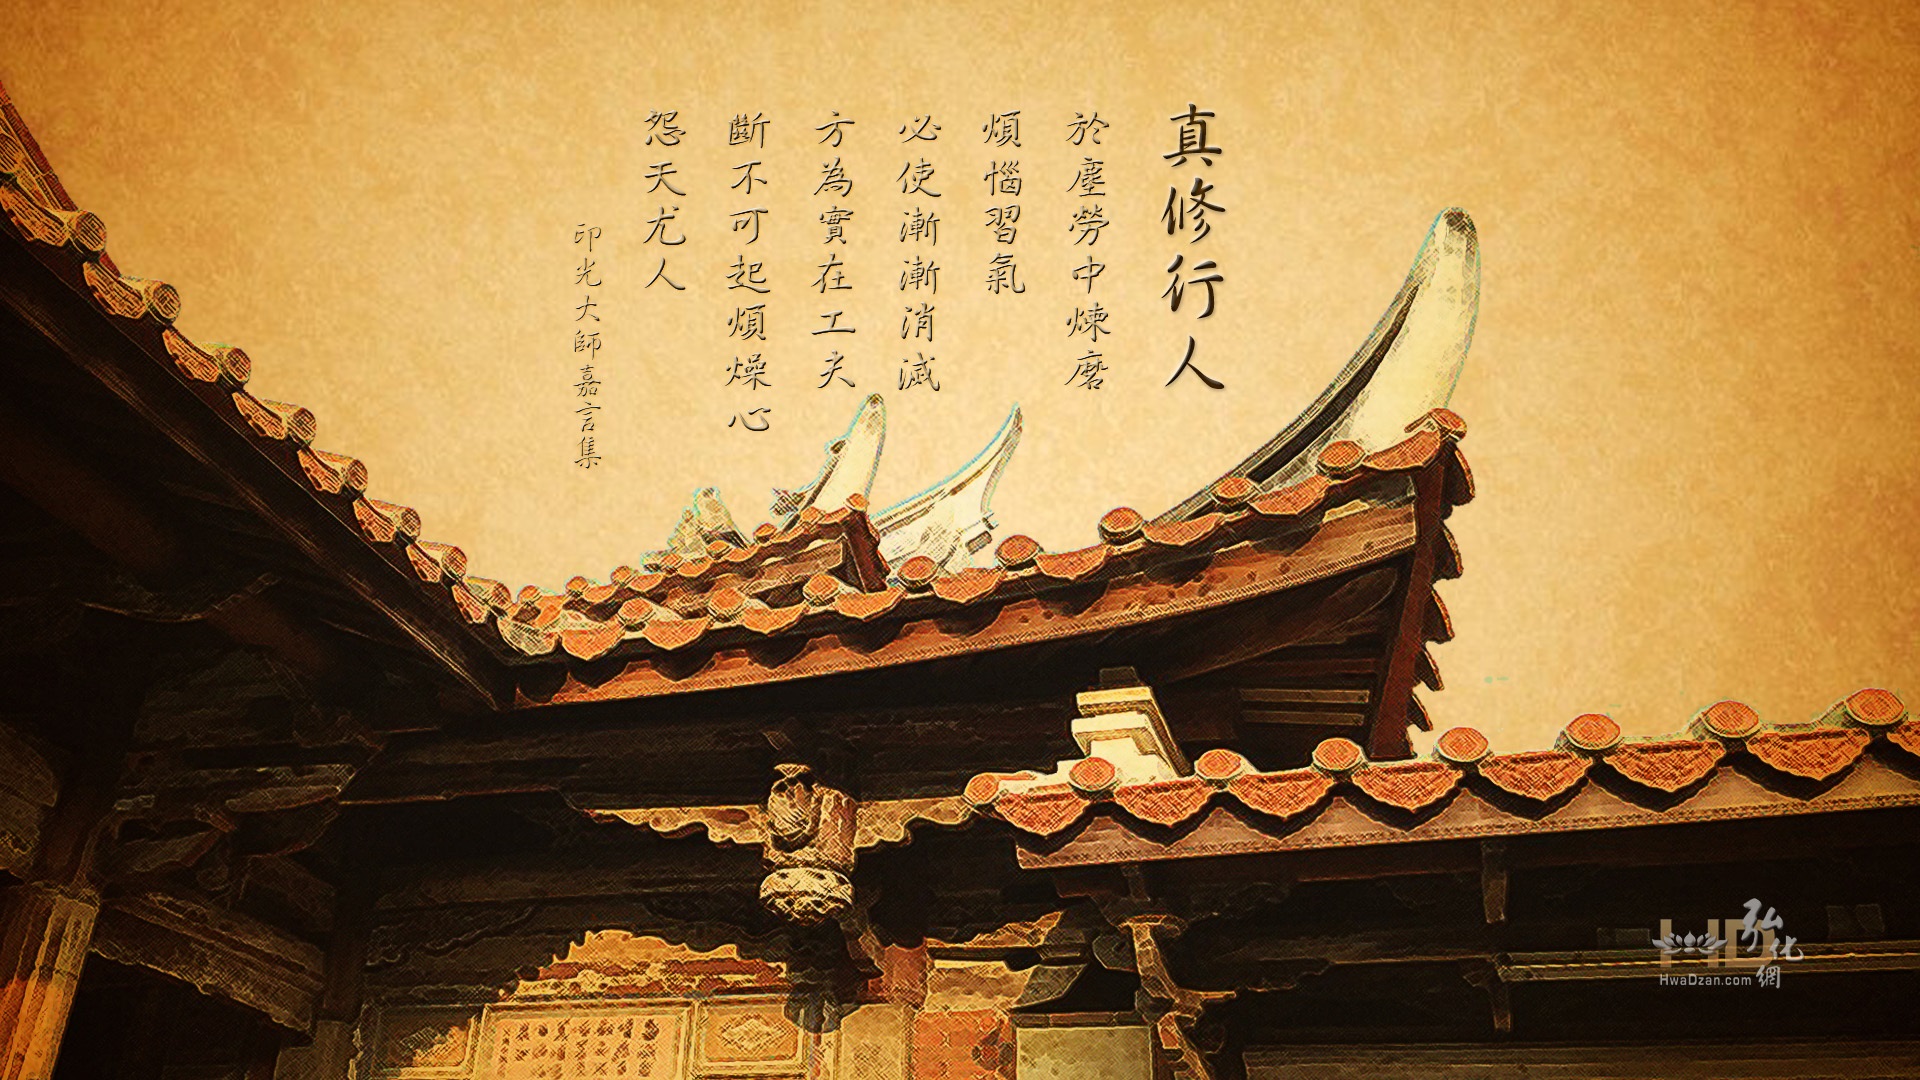 真修行人
於塵勞中煉磨
煩惱習氣
必使漸漸消滅
方為實在工夫
斷不可起煩燥心
怨天尤人
印光大師嘉言集
HD
弘化網
HwaDzan.com